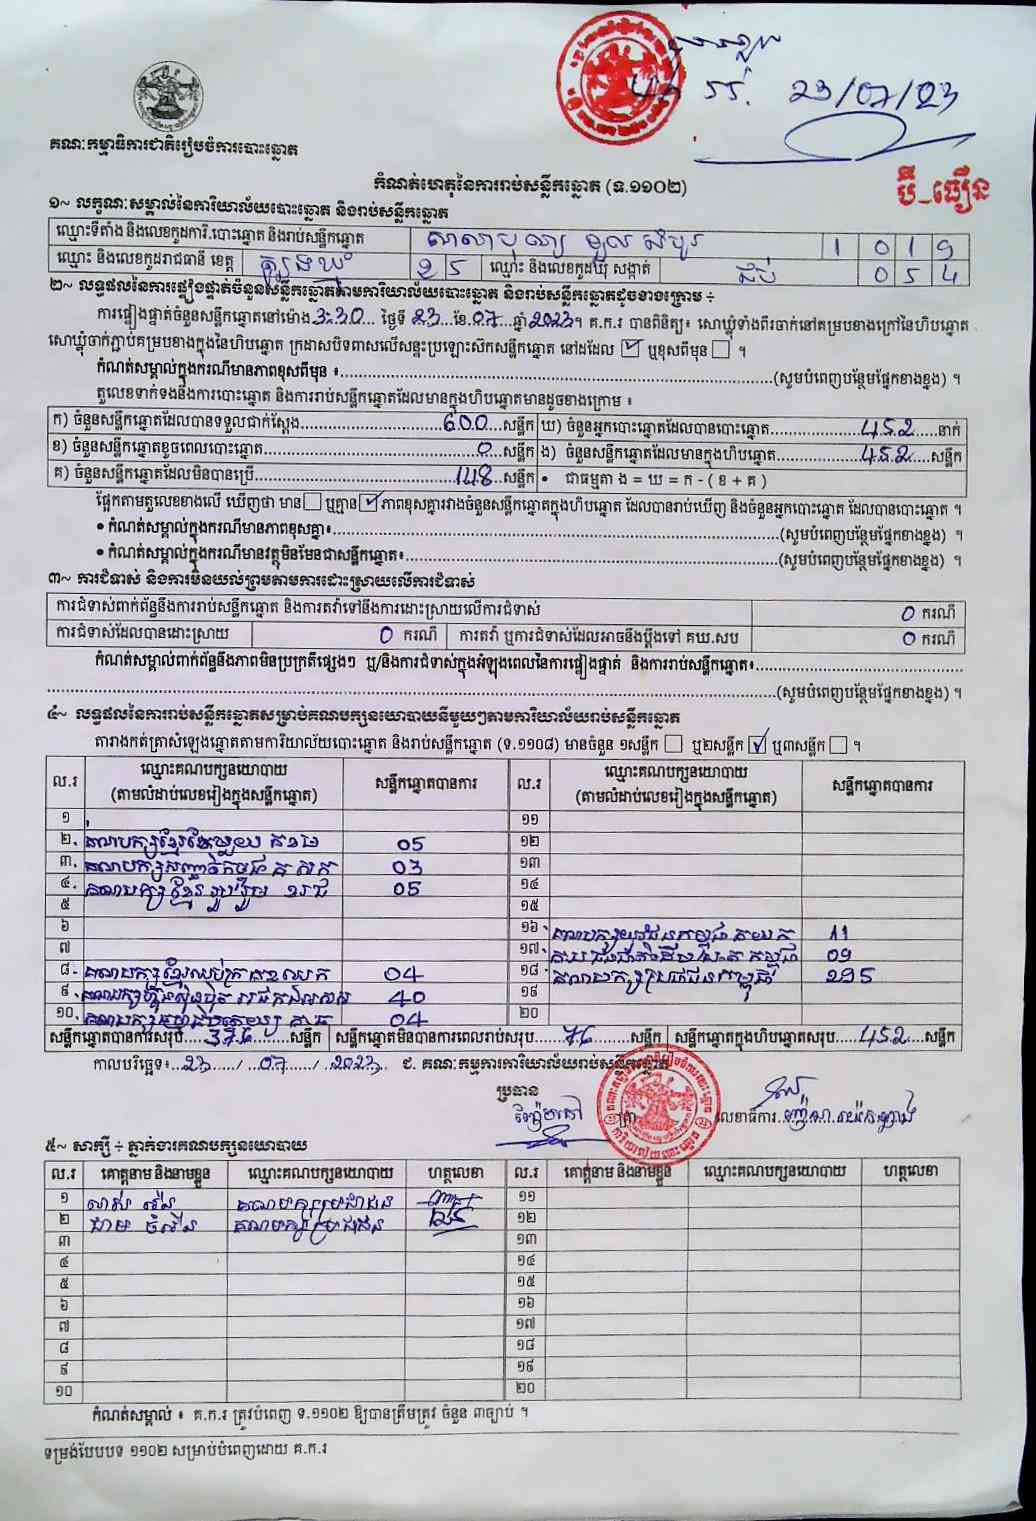 គណៈកម្មាធិការជាតិរៀបចំការបោះឆ្នោត
23/07/23
កំណត់ហេតុនៃការរាប់សន្លឹកឆ្នោត (ទ.១១០២)
ប៊ី_ធឿន
១~ លក្ខណៈសម្គាល់នៃការិយាល័យបោះឆ្នោត និងរាប់សន្លឹកឆ្នោត
ឈ្មោះទីតាំង និងលេខកូដការិ.បោះឆ្នោត និងរាប់សន្លឹកឆ្នោត សាលាបុណ្យ 1 0 1 9
ឈ្មោះ និងលេខកូដរាជធានី ខេត្ត ត្បូងឃ្មុំ 2 5 ឈ្មោះ និងលេខកូដឃុំ សង្កាត់ ជប់ 0 5 4
២~ លទ្ធផលនៃការផ្ទៀងផ្ទាត់ចំនួនសន្លឹកឆ្នោតតាមការិយាល័យបោះឆ្នោត និងរាប់សន្លឹកឆ្នោតដូចខាងក្រោម ៖
ការផ្ទៀងផ្ទាត់ចំនួនសន្លឹកឆ្នោតនៅម៉ោង 3:30 ថ្ងៃទី 23 ខែ 07 ឆ្នាំ 2023។ គ.ក.រ បានពិនិត្យ៖ សោឃ្មុំទាំងពីរចាក់នៅគម្របខាងក្រៅនៃហិបឆ្នោត
សោឃ្មុំចាក់ភ្ជាប់គម្របខាងក្នុងនៃហិបឆ្នោត ក្រដាសបិទពាសលើសន្ទះប្រឡោះស៊កសន្លឹកឆ្នោត នៅដដែល ☑ ឬខុសពីមុន ☐ ។
កំណត់សម្គាល់ក្នុងករណីមានភាពខុសពីមុន ៖ (សូមបំពេញបន្ថែមផ្នែកខាងខ្នង) ។
តួលេខទាក់ទងនឹងការបោះឆ្នោត និងការរាប់សន្លឹកឆ្នោតដែលមានក្នុងហិបឆ្នោតមានដូចខាងក្រោម ៖
ក) ចំនួនសន្លឹកឆ្នោតដែលបានទទួលជាក់ស្តែង 600 សន្លឹក ឃ) ចំនួនអ្នកបោះឆ្នោតដែលបានបោះឆ្នោត 452 នាក់
ខ) ចំនួនសន្លឹកឆ្នោតខូចពេលបោះឆ្នោត 0 សន្លឹក ង) ចំនួនសន្លឹកឆ្នោតដែលមានក្នុងហិបឆ្នោត 452 សន្លឹក
គ) ចំនួនសន្លឹកឆ្នោតដែលមិនបានប្រើ 148 សន្លឹក • ជាធម្មតា ង = ឃ = ក - ( ខ + គ )
ផ្អែកតាមតួលេខខាងលើ ឃើញថា មាន ☐ ឬគ្មាន ☑ ភាពខុសគ្នារវាងចំនួនសន្លឹកឆ្នោតក្នុងហិបឆ្នោត ដែលបានរាប់ឃើញ និងចំនួនអ្នកបោះឆ្នោត ដែលបានបោះឆ្នោត ។
• កំណត់សម្គាល់ក្នុងករណីមានភាពខុសគ្នា៖ (សូមបំពេញបន្ថែមផ្នែកខាងខ្នង) ។
• កំណត់សម្គាល់ក្នុងករណីមានវត្ថុមិនមែនជាសន្លឹកឆ្នោត៖ (សូមបំពេញបន្ថែមផ្នែកខាងខ្នង) ។
៣~ ការជំទាស់ និងការមិនយល់ព្រមតាមការដោះស្រាយលើការជំទាស់
ការជំទាស់ពាក់ព័ន្ធនឹងការរាប់សន្លឹកឆ្នោត និងការតវ៉ាទៅនឹងការដោះស្រាយលើការជំទាស់ 0 ករណី
ការជំទាស់ដែលបានដោះស្រាយ 0 ករណី ការតវ៉ា ឬការជំទាស់ដែលអាចនឹងប្តឹងទៅ គឃ.សប 0 ករណី
កំណត់សម្គាល់ពាក់ព័ន្ធនឹងភាពមិនប្រក្រតីផ្សេងៗ ឬ/និងការជំទាស់ក្នុងអំឡុងពេលនៃការផ្ទៀងផ្ទាត់ និងការរាប់សន្លឹកឆ្នោត៖
(សូមបំពេញបន្ថែមផ្នែកខាងខ្នង) ។
៤~ លទ្ធផលនៃការរាប់សន្លឹកឆ្នោតសម្រាប់គណបក្សនយោបាយនីមួយៗតាមការិយាល័យរាប់សន្លឹកឆ្នោត
តារាងកត់ត្រាសំឡេងឆ្នោតតាមការិយាល័យបោះឆ្នោត និងរាប់សន្លឹកឆ្នោត (ទ.១១០៨) មានចំនួន ១សន្លឹក ☐ ឬ២សន្លឹក ☑ ឬ៣សន្លឹក ☐ ។
ល.រ ឈ្មោះគណបក្សនយោបាយ (តាមលំដាប់លេខរៀងក្នុងសន្លឹកឆ្នោត) សន្លឹកឆ្នោតបានការ ល.រ ឈ្មោះគណបក្សនយោបាយ (តាមលំដាប់លេខរៀងក្នុងសន្លឹកឆ្នោត) សន្លឹកឆ្នោតបានការ
១ ១១
២ គណបក្សខ្មែរតែមួយ 05 ១២
៣ គណបក្សសញ្ជាតិកម្ពុជា 03 ១៣
៤ គណបក្សខ្មែររួបរួម 05 ១៤
៥ ១៥
៦ ១៦ គណបក្សយុវជនកម្ពុជា គយក 11
៧ ១៧ 09
៨ គណបក្សខ្មែរឈប់ក្រ 04 ១៨ គណបក្សប្រជាជនកម្ពុជា 295
៩ គណបក្សហ្វ៊ុនស៊ិនប៉ិច 40 ១៩
១០ 04 ២០
សន្លឹកឆ្នោតបានការសរុប 376 សន្លឹក សន្លឹកឆ្នោតមិនបានការពេលរាប់សរុប 76 សន្លឹក សន្លឹកឆ្នោតក្នុងហិបឆ្នោតសរុប 452 សន្លឹក
កាលបរិច្ឆេទ៖ 23 / 07 / 2023 ជ. គណៈកម្មការការិយាល័យរាប់សន្លឹកឆ្នោត
ប្រធាន
ត្រា លេខាធិការ
៥~ សាក្សី ÷ ភ្នាក់ងារគណបក្សនយោបាយ
ល.រ គោត្តនាម និងនាមខ្លួន ឈ្មោះគណបក្សនយោបាយ ហត្ថលេខា ល.រ គោត្តនាម និងនាមខ្លួន ឈ្មោះគណបក្សនយោបាយ ហត្ថលេខា
១ គណបក្សប្រជាជន ១១
២ គណបក្សប្រជាជន ១២
៣ ១៣
៤ ១៤
៥ ១៥
៦ ១៦
៧ ១៧
៨ ១៨
៩ ១៩
១០ ២០
កំណត់សម្គាល់ ៖ គ.ក.រ ត្រូវបំពេញ ទ.១១០២ ឱ្យបានត្រឹមត្រូវ ចំនួន ៣ច្បាប់ ។
ទម្រង់បែបបទ ១១០២ សម្រាប់បំពេញដោយ គ.ក.រ